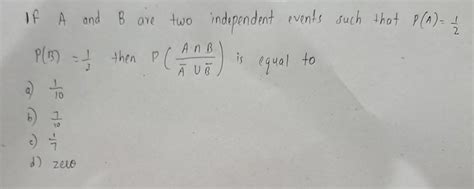 If A and B are two independent events such that P(A)= 1/2
P(B) = 1/2 then P ( A ∩ B / A̅ ∪ B̅ ) is equal to
a) 1/10
b) 7/10
c) 1/7
d) zero